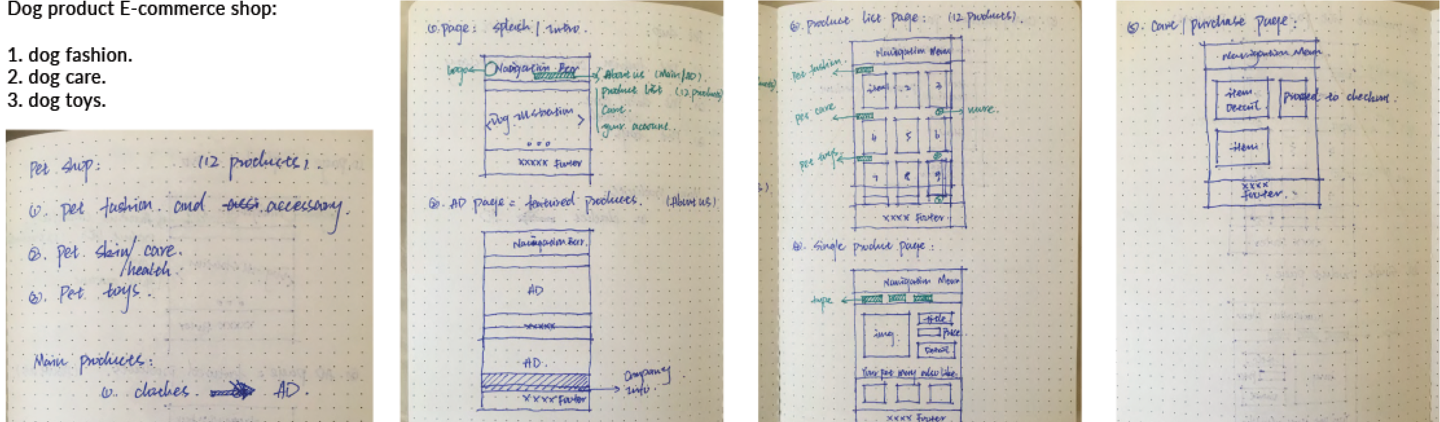 Dog product E-commerce shop:
1. dog fashion.
2. dog care.
3. dog toys.
Pet shop: (12 products).
①. pet fashion. and accessory.
②. pet skin/care.
/health
③. Pet toys.
Main products:
①. cloches. AD.
①. page: splash / intro.
Logo
Navigation Bar
About us (Main/AD).
product list (12 products)
Care.
your account.
Dog illustration
xxxxx Footer
②. AD page = featured products. (About us)
Navigation Bar.
AD
xxxxx
AD.
Company Info
xxxx Footer
③. product list page: (12 products).
Navigation Menu
pet fashion.
item1 2 3
more.
pet care
4 5 6
pet toys
7 8 9
xxxx Footer
④. Single product page:
Navigation Menu
type
img.
title
Price
Detail
Your pet may also like.
xxxx Footer
⑤. Care / purchase page:
Navigation Menu
item Detail
proceed to checkout.
item
xxxx
Footer.